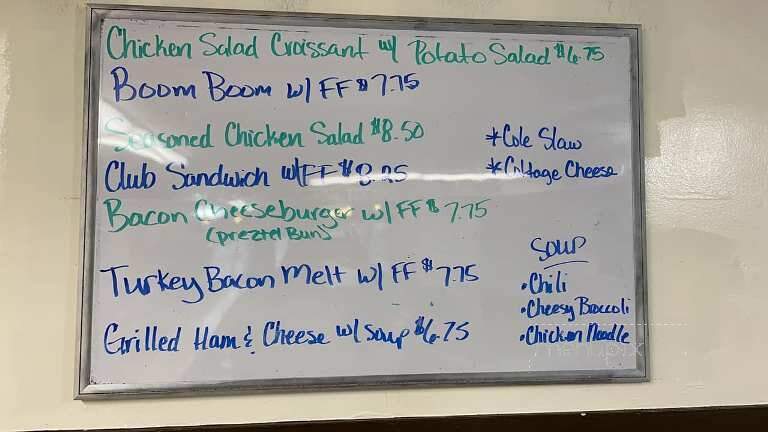 Chicken Salad Croissant w/ Potato Salad $6.75
Boom Boom w/ FF $7.75
Seasoned Chicken Salad $8.50
Club Sandwich w/ FF $8.25
Bacon Cheeseburger w/ FF $7.75
(preztel Bun)
Turkey Bacon Melt w/ FF $7.75
Grilled Ham & Cheese w/ Soup $6.75
*Cole Slaw
*Cottage Cheese
Soup
•Chili
•Cheesy Broccoli
•Chicken Noodle